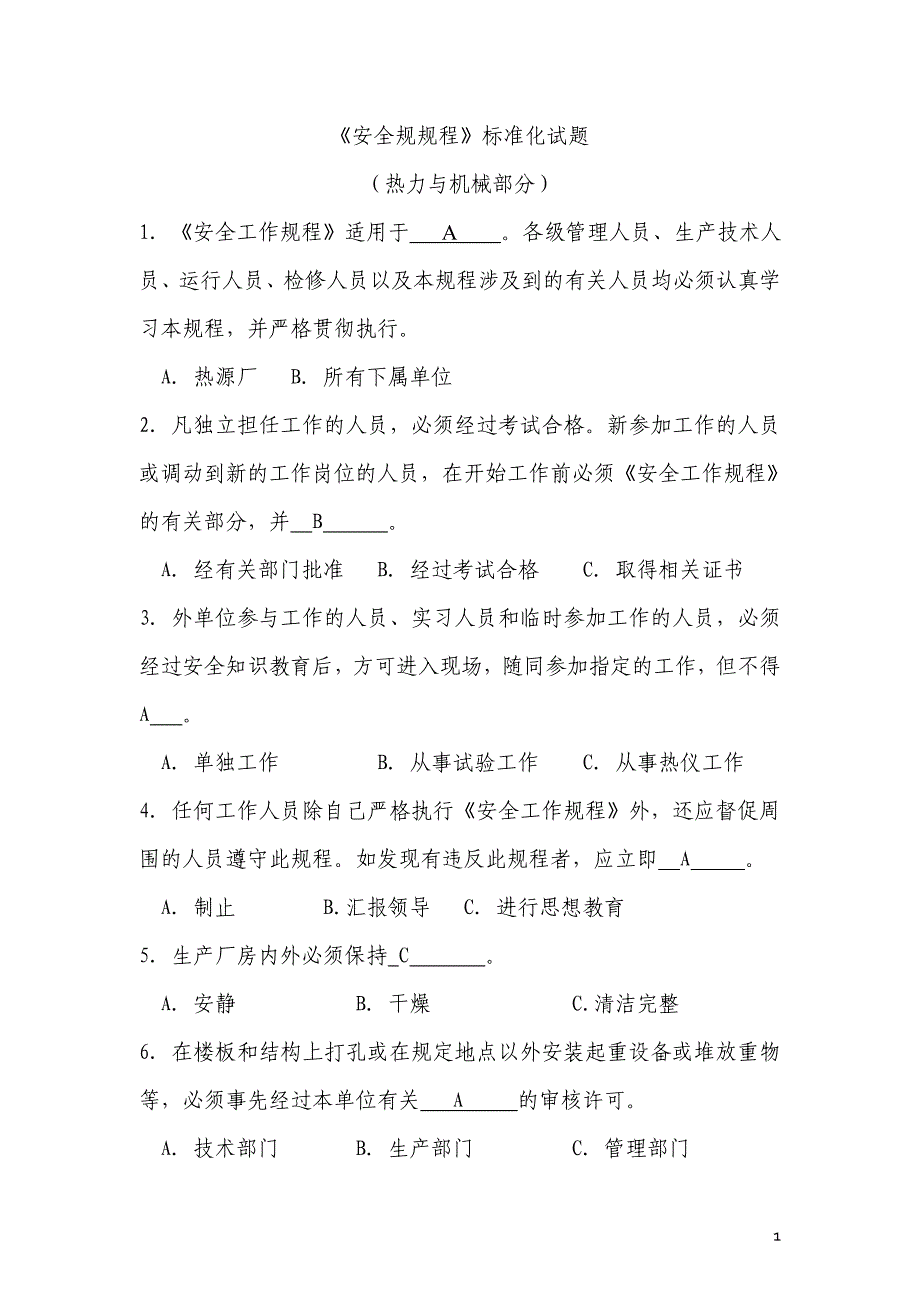 《安全规规程》标准化试题
（热力与机械部分）
1. 《安全工作规程》适用于___A____。各级管理人员、生产技术人
员、运行人员、检修人员以及本规程涉及到的有关人员均必须认真学
习本规程，并严格贯彻执行。
A. 热源厂 B. 所有下属单位
2. 凡独立担任工作的人员，必须经过考试合格。新参加工作的人员
或调动到新的工作岗位的人员，在开始工作前必须《安全工作规程》
的有关部分，并__B______。
A. 经有关部门批准 B. 经过考试合格 C. 取得相关证书
3. 外单位参与工作的人员、实习人员和临时参加工作的人员，必须
经过安全知识教育后，方可进入现场，随同参加指定的工作，但不得
A___。
A. 单独工作 B. 从事试验工作 C. 从事热仪工作
4. 任何工作人员除自己严格执行《安全工作规程》外，还应督促周
围的人员遵守此规程。如发现有违反此规程者，应立即__A_____。
A. 制止 B.汇报领导 C. 进行思想教育
5. 生产厂房内外必须保持_C_______。
A. 安静 B. 干燥 C.清洁完整
6. 在楼板和结构上打孔或在规定地点以外安装起重设备或堆放重物
等，必须事先经过本单位有关___A_____的审核许可。
A. 技术部门 B. 生产部门 C. 管理部门
1